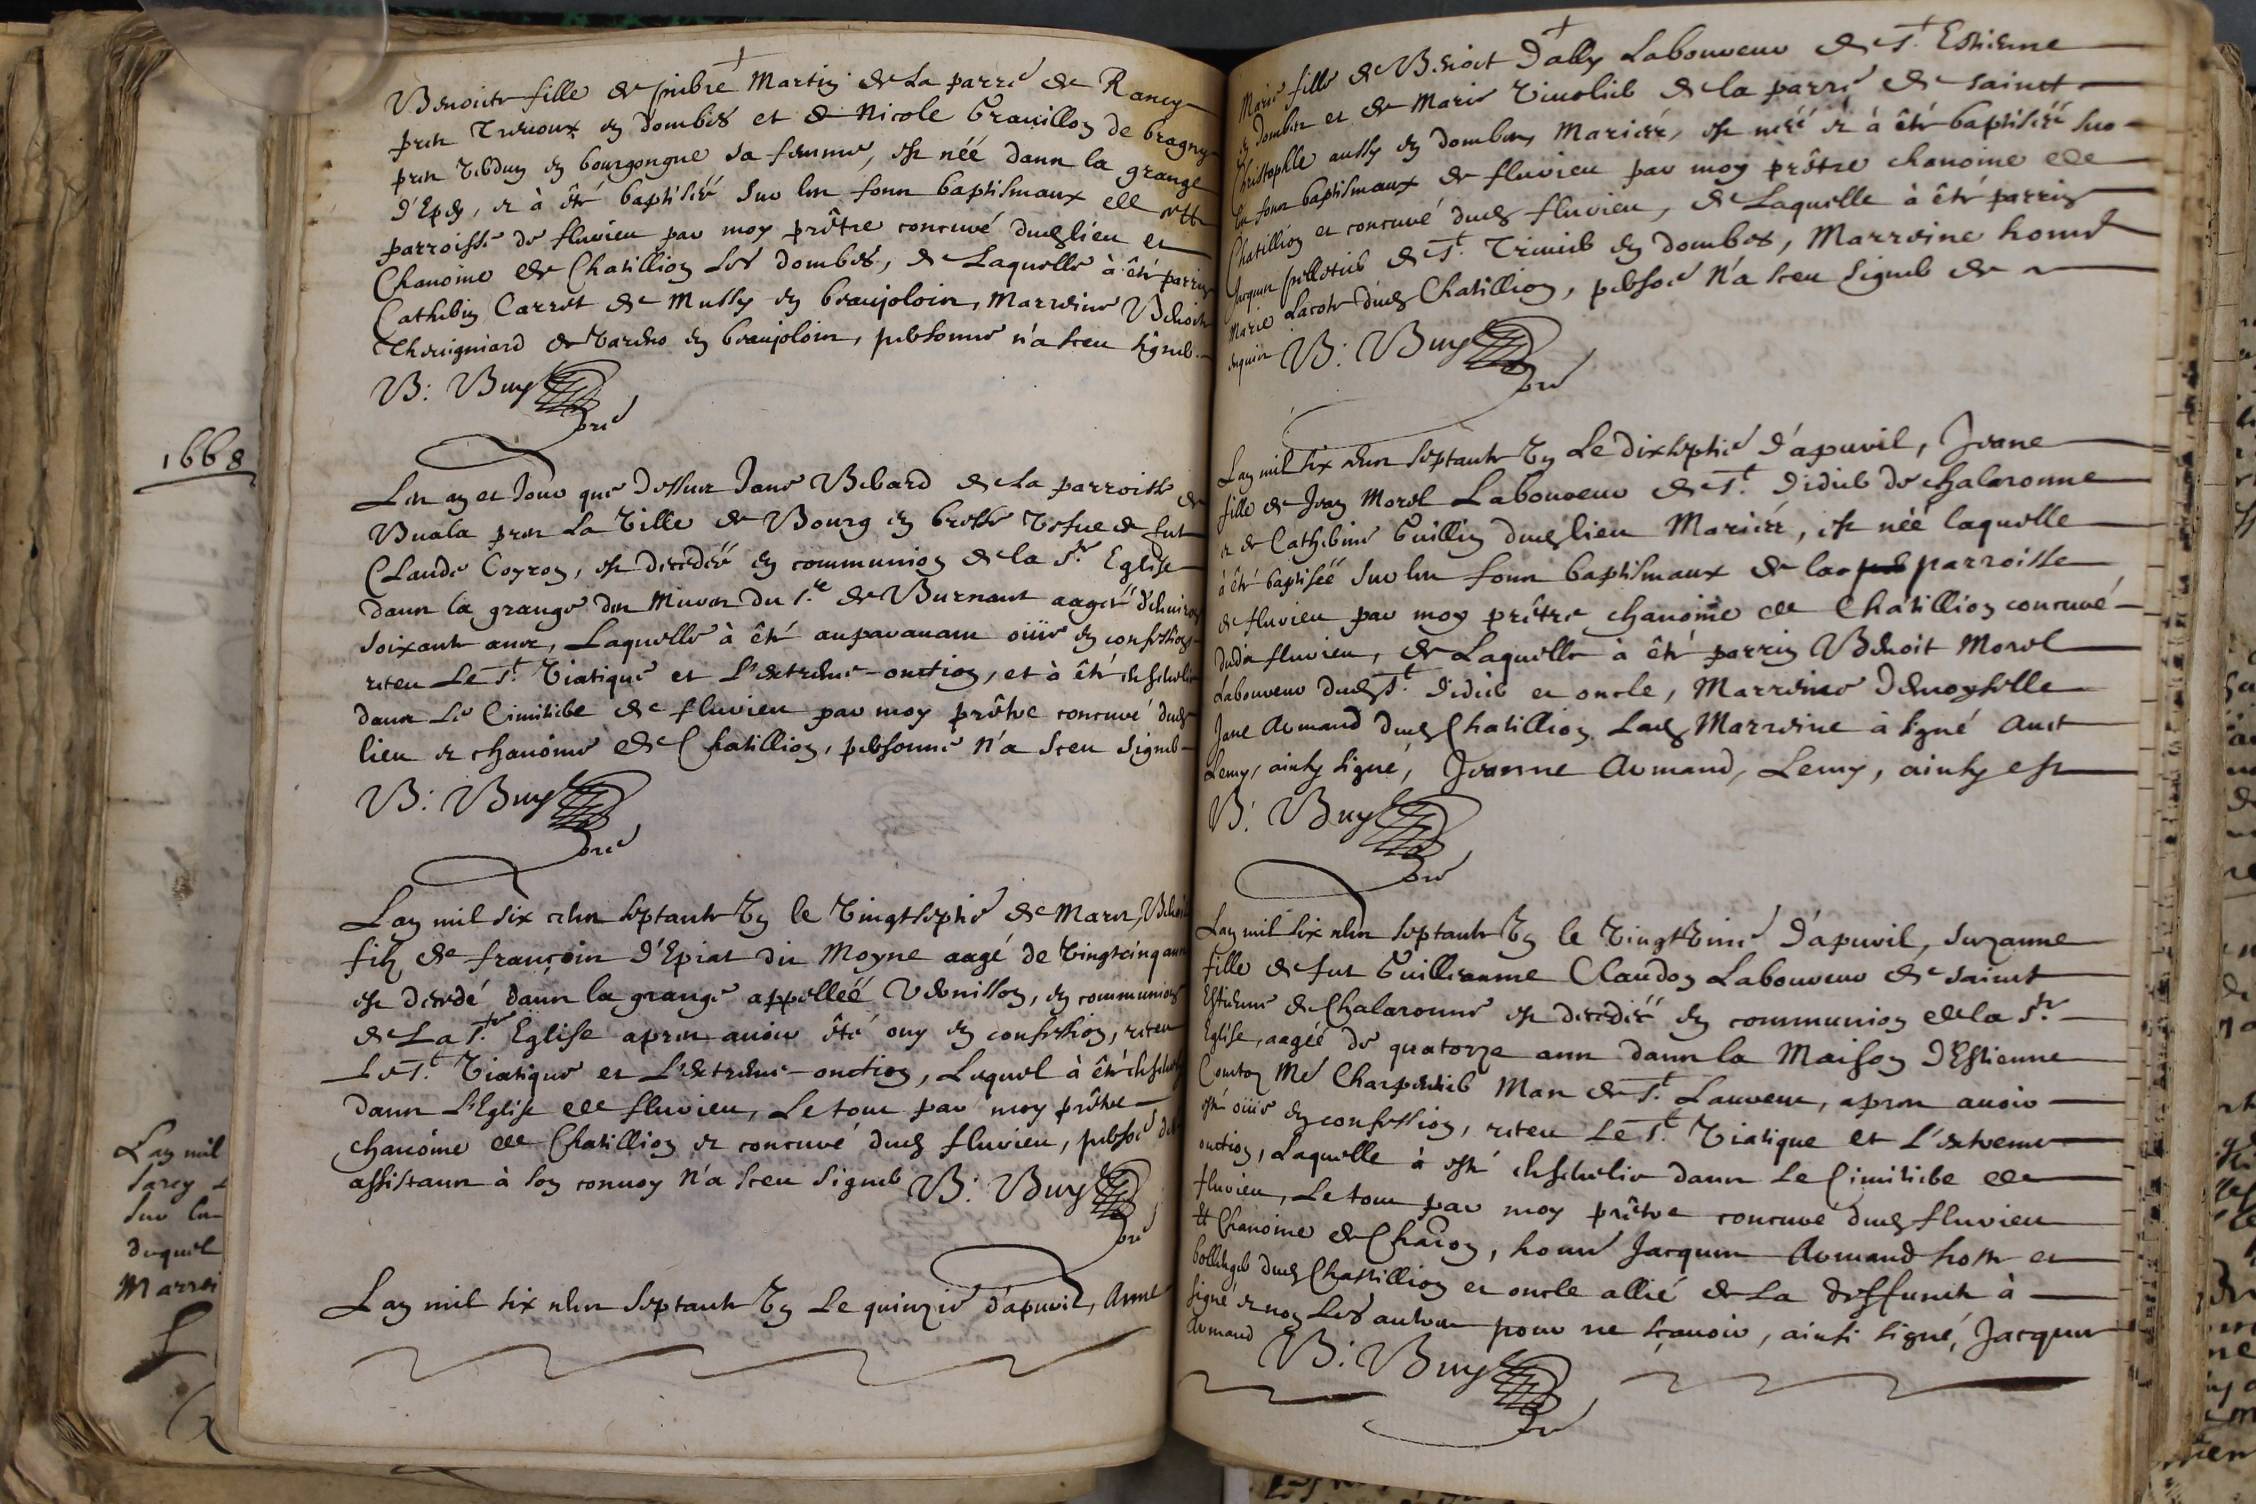 Benoiste fille de pierre Martin de La parré de Rancy
pres Trevoux en dombes et de Nicole Grauillon de bragny
pres Verdun en bourgongne sa femme, est néé dans la grange
d'Epey, et à été baptiséé sur les fons baptismaux de cette
parroisse de fluvieu par moy prêtre concuré dudlieu et
Chanoine de Chatillion Les dombes, de Laquelle à été parrin
Catherin Carret de Mussy en beaujolois, Marreine Benoite
de en beaujolois, personne n'a sceu signer
B: Buy
pre
1668
Les an et Jour que dessus Jane Berard de La parroisse de
Buala pres La Ville de Bourg en bresse Vefue de fut
Claude Coyron, est decedéé en communion de la Ste Eglise
dans la grange des Mures du Sr de Burnant aagéé d'environ
soixante ans, Laquelle à été auparauant oüie en confession
receu Le St Viatique et L'extreme-onction, et à été ensevelie
dans Le Cimitiere de fluvieu par moy prêtre concuré dud
lieu et chanoine de Chatillion, personne n'a sceu signer
B: Buy
pre
Lan mil six cens septante Un le Vingtseptié de Mars, Benoit
filz de françois d'Epiat du Moyne aagé de Vingtcinq ans
est decedé dans la grange appelléé Venisson, en communion
de La Ste Eglise apres auoir été ouy en confession, receu
Le St Viatique et L'extreme-onction, Lequel à été ensevely
dans L'Eglise de fluvieu, Le tout par moy prêtre
chanoine de Chatillion et concuré dud fluvieu, persoé des
assistans à son conuoy n'a sceu signer B: Buy
pre
Lan mil six cens septante Un Le quinzié d'apuril, Anne
Lan mil
sur les
duquel
Marrei
Marie fille de Benoit Dally Laboureur de St Estienne
en dombes et de Marie de la parré de sainct
Christophle aussy en dombes, Mariéz, est néé et à été baptiséé sur
les fons baptismaux de fluvieu par moy prêtre chanoine de
Chatillion et concuré dud fluvieu, de Laquelle à été parrin
Jacques pelletier de St Trivier en dombes, Marreine honée
Marie Lacote dud Chatillion, persoé n'a sceu signer de
enquis B: Buy
pre
Lan mil six cens septante Un Le dixseptié d'apuril, Jeane
fille de Jean Morel Laboureur de St Didier de chalaronne
et de Catherine Guillin dudlieu Mariéz, est néé laquelle
à été baptiséé sur les fons baptismaux de la parroisse
de fluvieu par moy prêtre chanoine de Chatillion concuré
dudit fluvieu, de Laquelle à été parrin Benoit Morel
Laboureur dud St Didier et oncle, Marreine Demoyselle
Jane Armand dud Chatillion Lad Marreine à signé Auec
Lemy, ainsy signé, Jeanne Armand, Lemy, ainsy est
B: Buy
pre
Lan mil six cens septante Un le Vingtunié d'apuril, Suzanne
fille de fut Guilleaume Claudon Laboureur de sainct
Estienne de Chalaronne est decedéé en communion de la Ste
Eglise, aagéé de quatorze ans dans la Maison d'Estienne
Comton Me Charpentier Mas de St Laurent, apres auoir
esté oüie en confession, receu Le St Viatique et L'extreme
onction, Laquelle à esté ensevelie dans Le Cimitiere de
fluvieu, Le tout par moy prêtre concuré dud fluvieu
et Chanoine de Chaôn, honée Jacques Armand hoste et
bollenger dud Chastillion et oncle allié de La deffuncte à
signé et non Les autres pour ne sçauoir, ainsi signé, Jacques
Armand B: Buy
pre